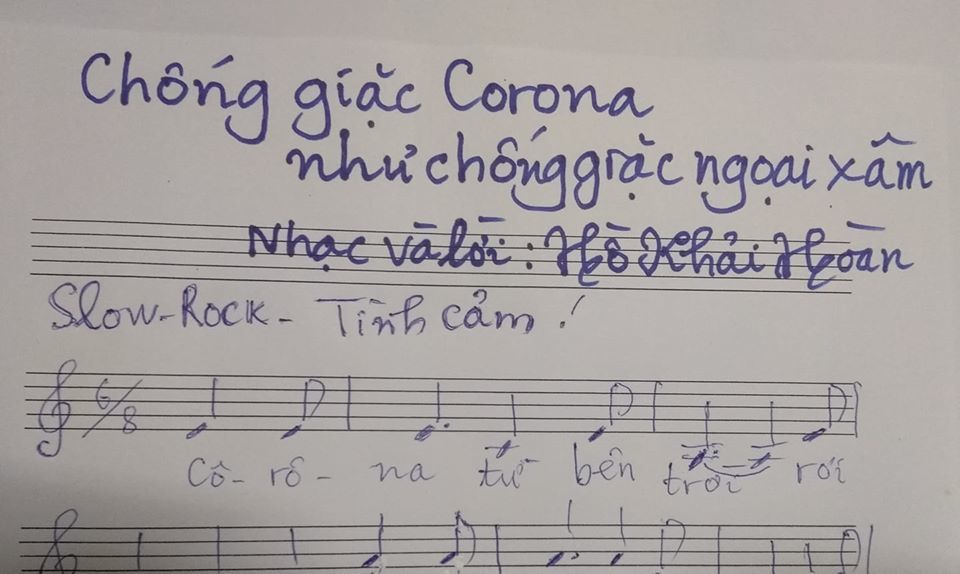 Chống giặc Corona
như chống giặc ngoại xâm
Nhạc và lời: Hồ Khải Hoàn
Slow-Rock- Tình cảm!
6/8
Cô-rô-na từ bên trời rơi